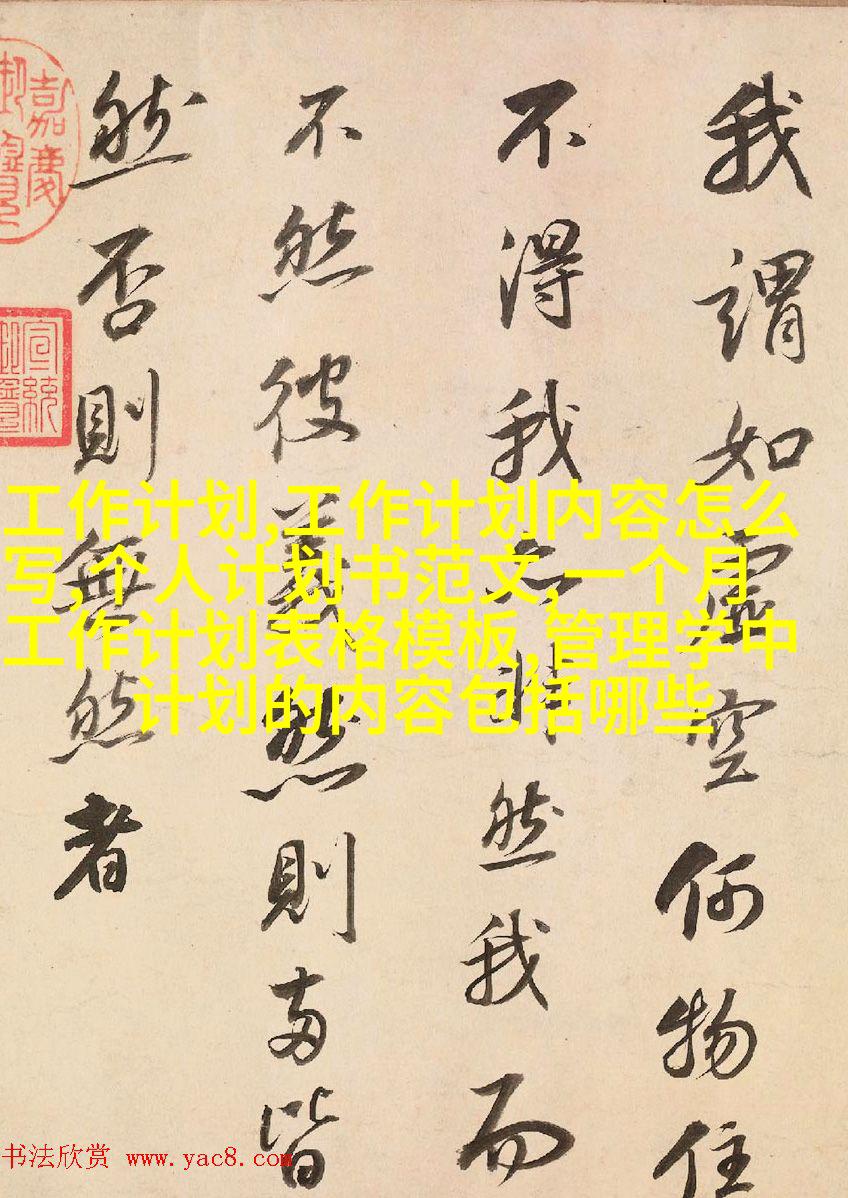 我謂如虛空何物住
不得我亦將然我而
不然彼義然則兩皆
然否則無然者
嘉慶
御覽
宣統
工作计划,工作计划内容怎么
写,个人计划书范文,一个月
工作计划表格模板,管理学中
计划的内容包括哪些
书法欣赏 www.yac8.com